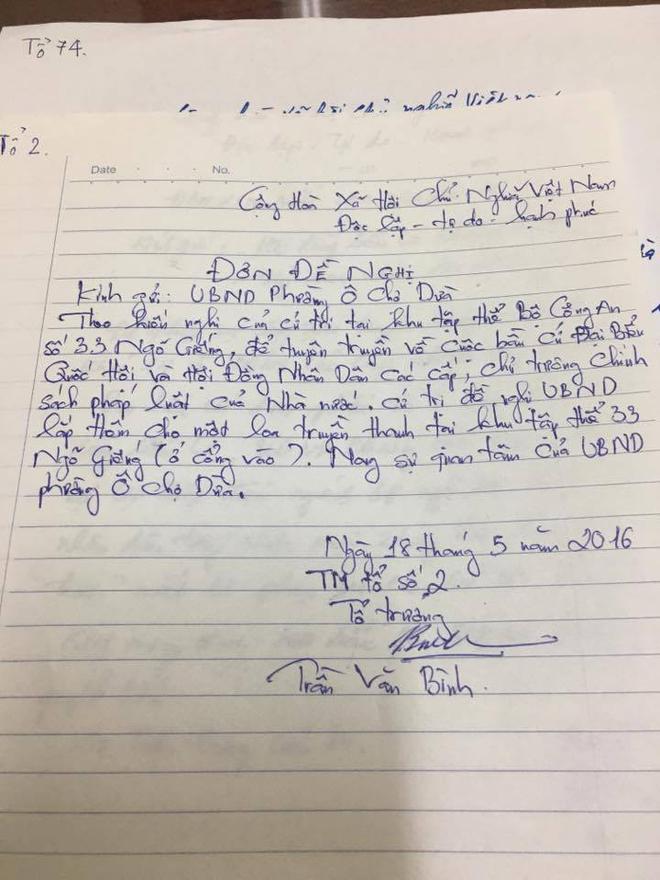 Tổ 74.
nghĩa Việt
Tổ 2.
Date . . . No.
Cộng Hoà Xã Hội Chủ Nghĩa Việt Nam
Độc lập - tự do - hạnh phúc
ĐƠN ĐỀ NGHỊ
Kính gửi: UBND Phường Ô Chợ Dừa
Theo kiến nghị của cử tri tại khu tập thể Bộ Công An
số 33 Ngõ Giếng, để tuyên truyền về cuộc bầu cử Đại Biểu
Quốc Hội và Hội Đồng Nhân Dân các cấp, chủ trương chính
sách pháp luật của Nhà nước. Cử tri đề nghị UBND
lắp thêm cho một loa truyền thanh tại khu tập thể 33
Ngõ Giếng (ở cổng vào). Mong sự quan tâm của UBND
phường Ô Chợ Dừa.
Ngày 18 tháng 5 năm 2016
TM tổ số 2
Tổ trưởng
Trần Văn Bình.